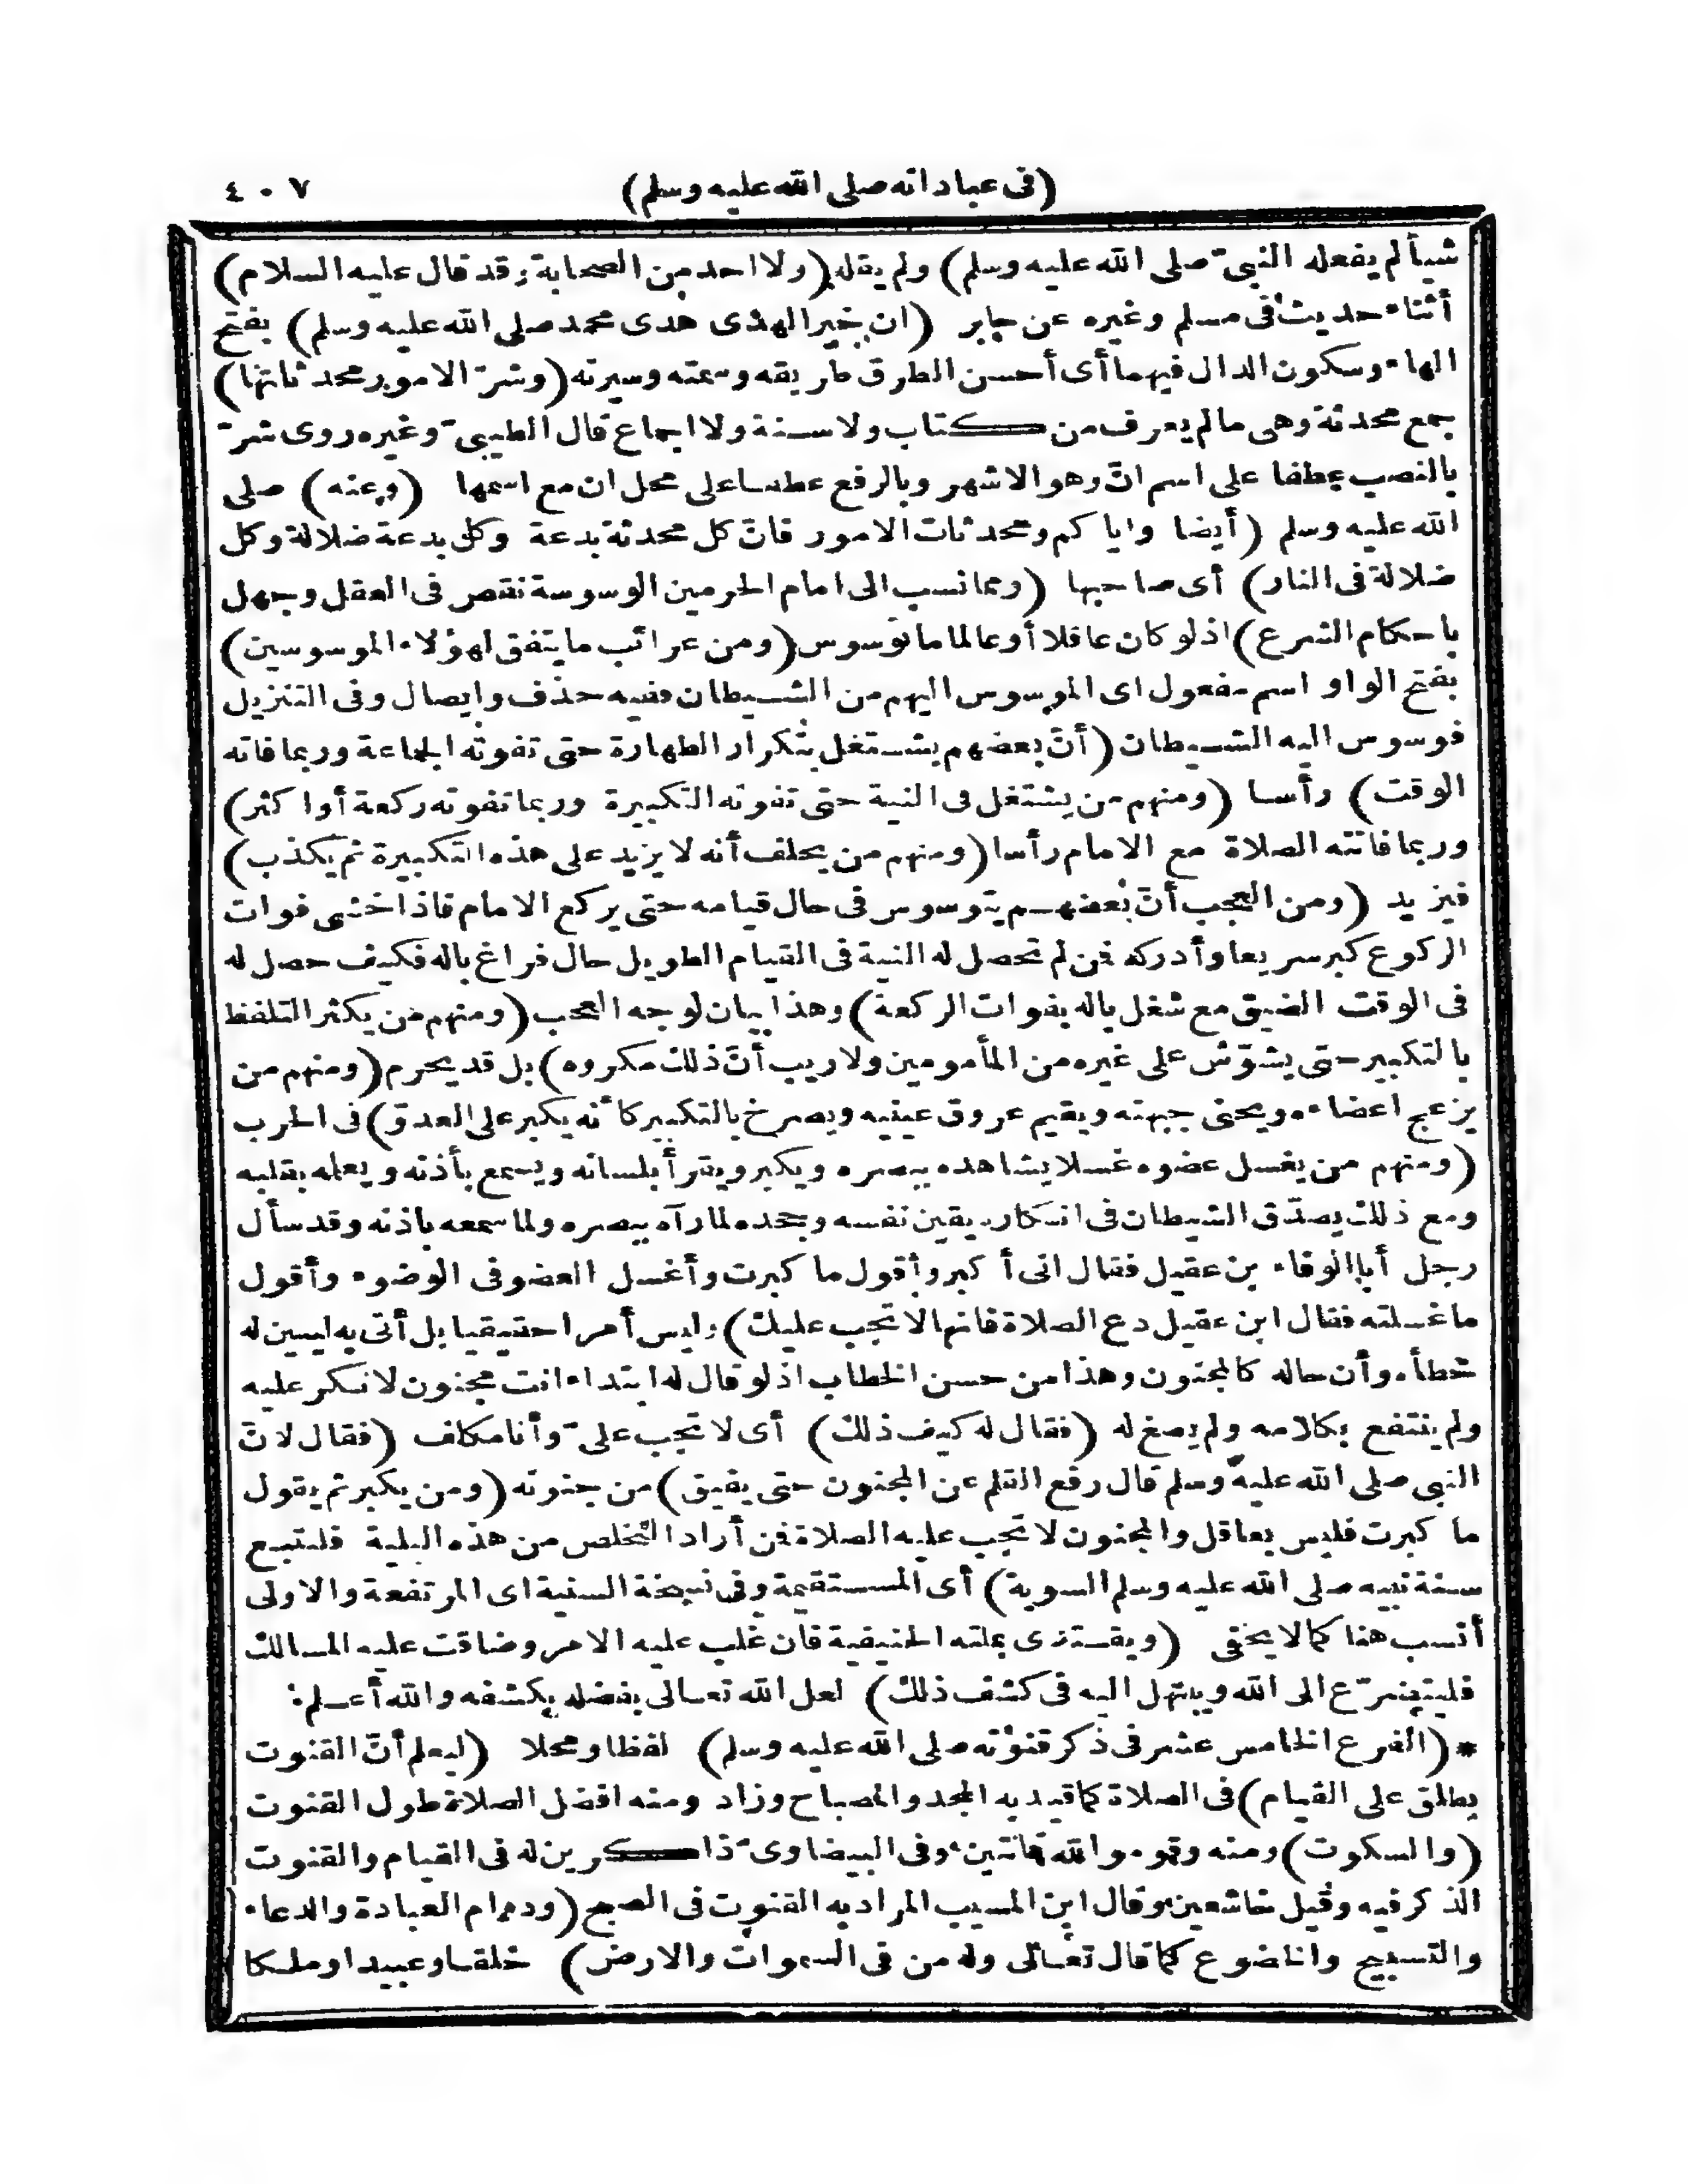 (فى عباداته صلى الله عليه وسلم) ٤٠٧
شيأ لم يفعله النبىّ صلى الله عليه وسلم) ولم يقله (ولا احد من الصحابة وقد قال عليه السلام)
أثناء حديث فى مسلم وغيره عن جابر (ان خير الهدى هدى محمد صلى الله عليه وسلم) بفتح
الهاء وسكون الدال فيهما أى أحسن الطرق طريقه وسمته وسيرته (وشرّ الامور محدثاتها)
جمع محدثة وهى مالم يعرف من كتاب ولا سنة ولا اجماع قال الطيبىّ وغيره روى شرّ
بالنصب عطفا على اسم انّ وهو الاشهر وبالرفع عطفا على محل ان مع اسمها (وعنه) صلى
الله عليه وسلم (أيضا واياكم ومحدثات الامور فانّ كل محدثة بدعة وكل بدعة ضلالة وكل
ضلالة فى النار) أى صاحبها (ومما نسب الى امام الحرمين الوسوسة نقص فى العقل وجهل
باحكام الشرع) اذ لو كان عاقلا أو عالما ما توسوس (ومن غرائب ما يتفق لهؤلاء الموسوسين)
بفتح الواو اسم مفعول اى الموسوس اليهم من الشيطان ففيه حذف وايصال وفى التنزيل
فوسوس اليه الشيطان (أنّ بعضهم يشتغل بتكرار الطهارة حتى تفوته الجماعة وربما فاته
الوقت) رأسا (ومنهم من يشتغل فى النية حتى تفوته التكبيرة وربما تفوته ركعة أو اكثر)
وربما فاتته الصلاة مع الامام رأسا (ومنهم من يحلف أنه لا يزيد على هذه التكبيرة ثم يكذب)
فيزيد (ومن العجب أنّ بعضهم يتوسوس فى حال قيامه حتى يركع الامام فاذا خشى فوات
الركوع كبر سريعا وأدركه فمن لم تحصل له النية فى القيام الطويل حال فراغ باله فكيف حصل له
فى الوقت الضيق مع شغل باله بفوات الركعة) وهذا بيان لوجه العجب (ومنهم من يكثر التلفظ
بالتكبير حتى يشوّش على غيره من المأمومين ولا ريب أنّ ذلك مكروه) بل قد يحرم (ومنهم من
يزعج اعضاءه ويحنى جبهته ويقيم عروق عينيه ويصرخ بالتكبير كأنه يكبر على العدوّ) فى الحرب
(ومنهم من يغسل عضوه غسلا يشاهده ببصره ويكبر ويقرأ بلسانه ويسمع بأذنه ويعلمه بقلبه
ومع ذلك يصدّق الشيطان فى انكاره يقين نفسه وجحده لما رآه ببصره ولما سمعه باذنه وقد سأل
رجل أبا الوفاء بن عقيل فقال انى أكبر وأقول ما كبرت وأغسل العضو فى الوضوء وأقول
ما غسلته فقال ابن عقيل دع الصلاة فانها لا تجب عليك) وليس أمرا حقيقيا بل أتى به ليبين له
خطأه وأن حاله كالمجنون وهذا من حسن الخطاب اذ لو قال له ابتداء انت مجنون لانكر عليه
ولم ينتفع بكلامه ولم يصغ له (فقال له كيف ذلك) أى لا تجب علىّ وأنا مكلف (فقال لانّ
النبى صلى الله عليه وسلم قال رفع القلم عن المجنون حتى يفيق) من جنونه (ومن يكبر ثم يقول
ما كبرت فليس بعاقل والمجنون لا تجب عليه الصلاة فمن أراد التخلص من هذه البلية فليتبع
سنة نبيه صلى الله عليه وسلم السوية) أى المستقيمة وفى نسخة السنية اى المرتفعة والاولى
أنسب هنا كما لا يخفى (ويقتدى بملته الحنيفية فان غلب عليه الامر وضاقت عليه المسالك
فليتضرّع الى الله ويبتهل اليه فى كشف ذلك) لعل الله تعالى بفضله يكشفه والله أعلم
* (الفرع الخامس عشر فى ذكر قنوته صلى الله عليه وسلم) لفظا ومحلا (ليعلم أنّ القنوت
يطلق على القيام) فى الصلاة كما قيد به المجد والمصباح وزاد ومنه افضل الصلاة طول القنوت
(والسكوت) ومنه وقوموا لله قانتين وفى البيضاوىّ ذاكرين له فى القيام والقنوت
الذكر فيه وقيل خاشعين وقال ابن المسيب المراد به القنوت فى الصبح (ودوام العبادة والدعاء
والتسبيح والخضوع كما قال تعالى وله من فى السموات والارض) خلقا وعبيدا وملكا